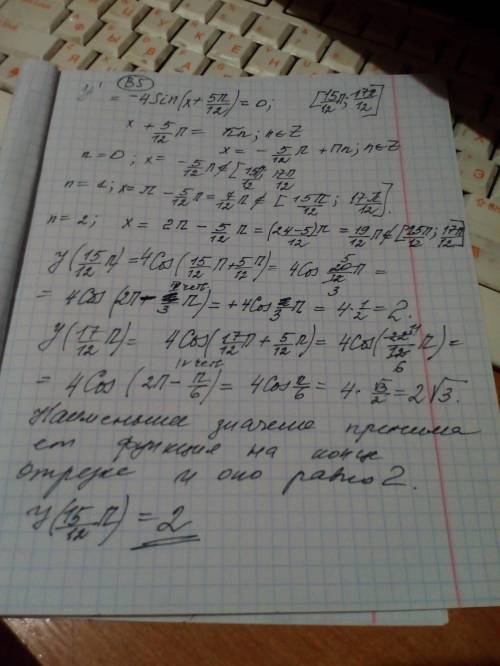 В5
y' = -4Sin(x + 5π/12) = 0; [15π/12; 17π/12]
x + 5/12 π = πn; n∈Z
x = -5/12 π + πn; n∈Z
n=0; x = -5/12 π ∉ [15π/12; 17π/12
n=1; x = π - 5/12 π = 7/12 π ∉ [15π/12; 17π/12].
n=2; x = 2π - 5/12 π = (24-5)π/12 = 19/12 π ∉ [15π/12; 17π/12]
y(15/12 π) = 4Cos(15/12 π + 5/12 π) = 4Cos 20/12 π =
= 4Cos(2π - π/3) = +4Cos π/3 = 4·1/2 = 2.
y(17/12 π) = 4Cos(17/12 π + 5/12 π) = 4Cos(22/12 π) =
IV чет.
= 4Cos(2π - π/6) = 4Cos π/6 = 4·√3/2 = 2√3.
Наименьше значение принима
ет функция на конце
отрезке и оно равно 2.
y(15/12 π) = 2